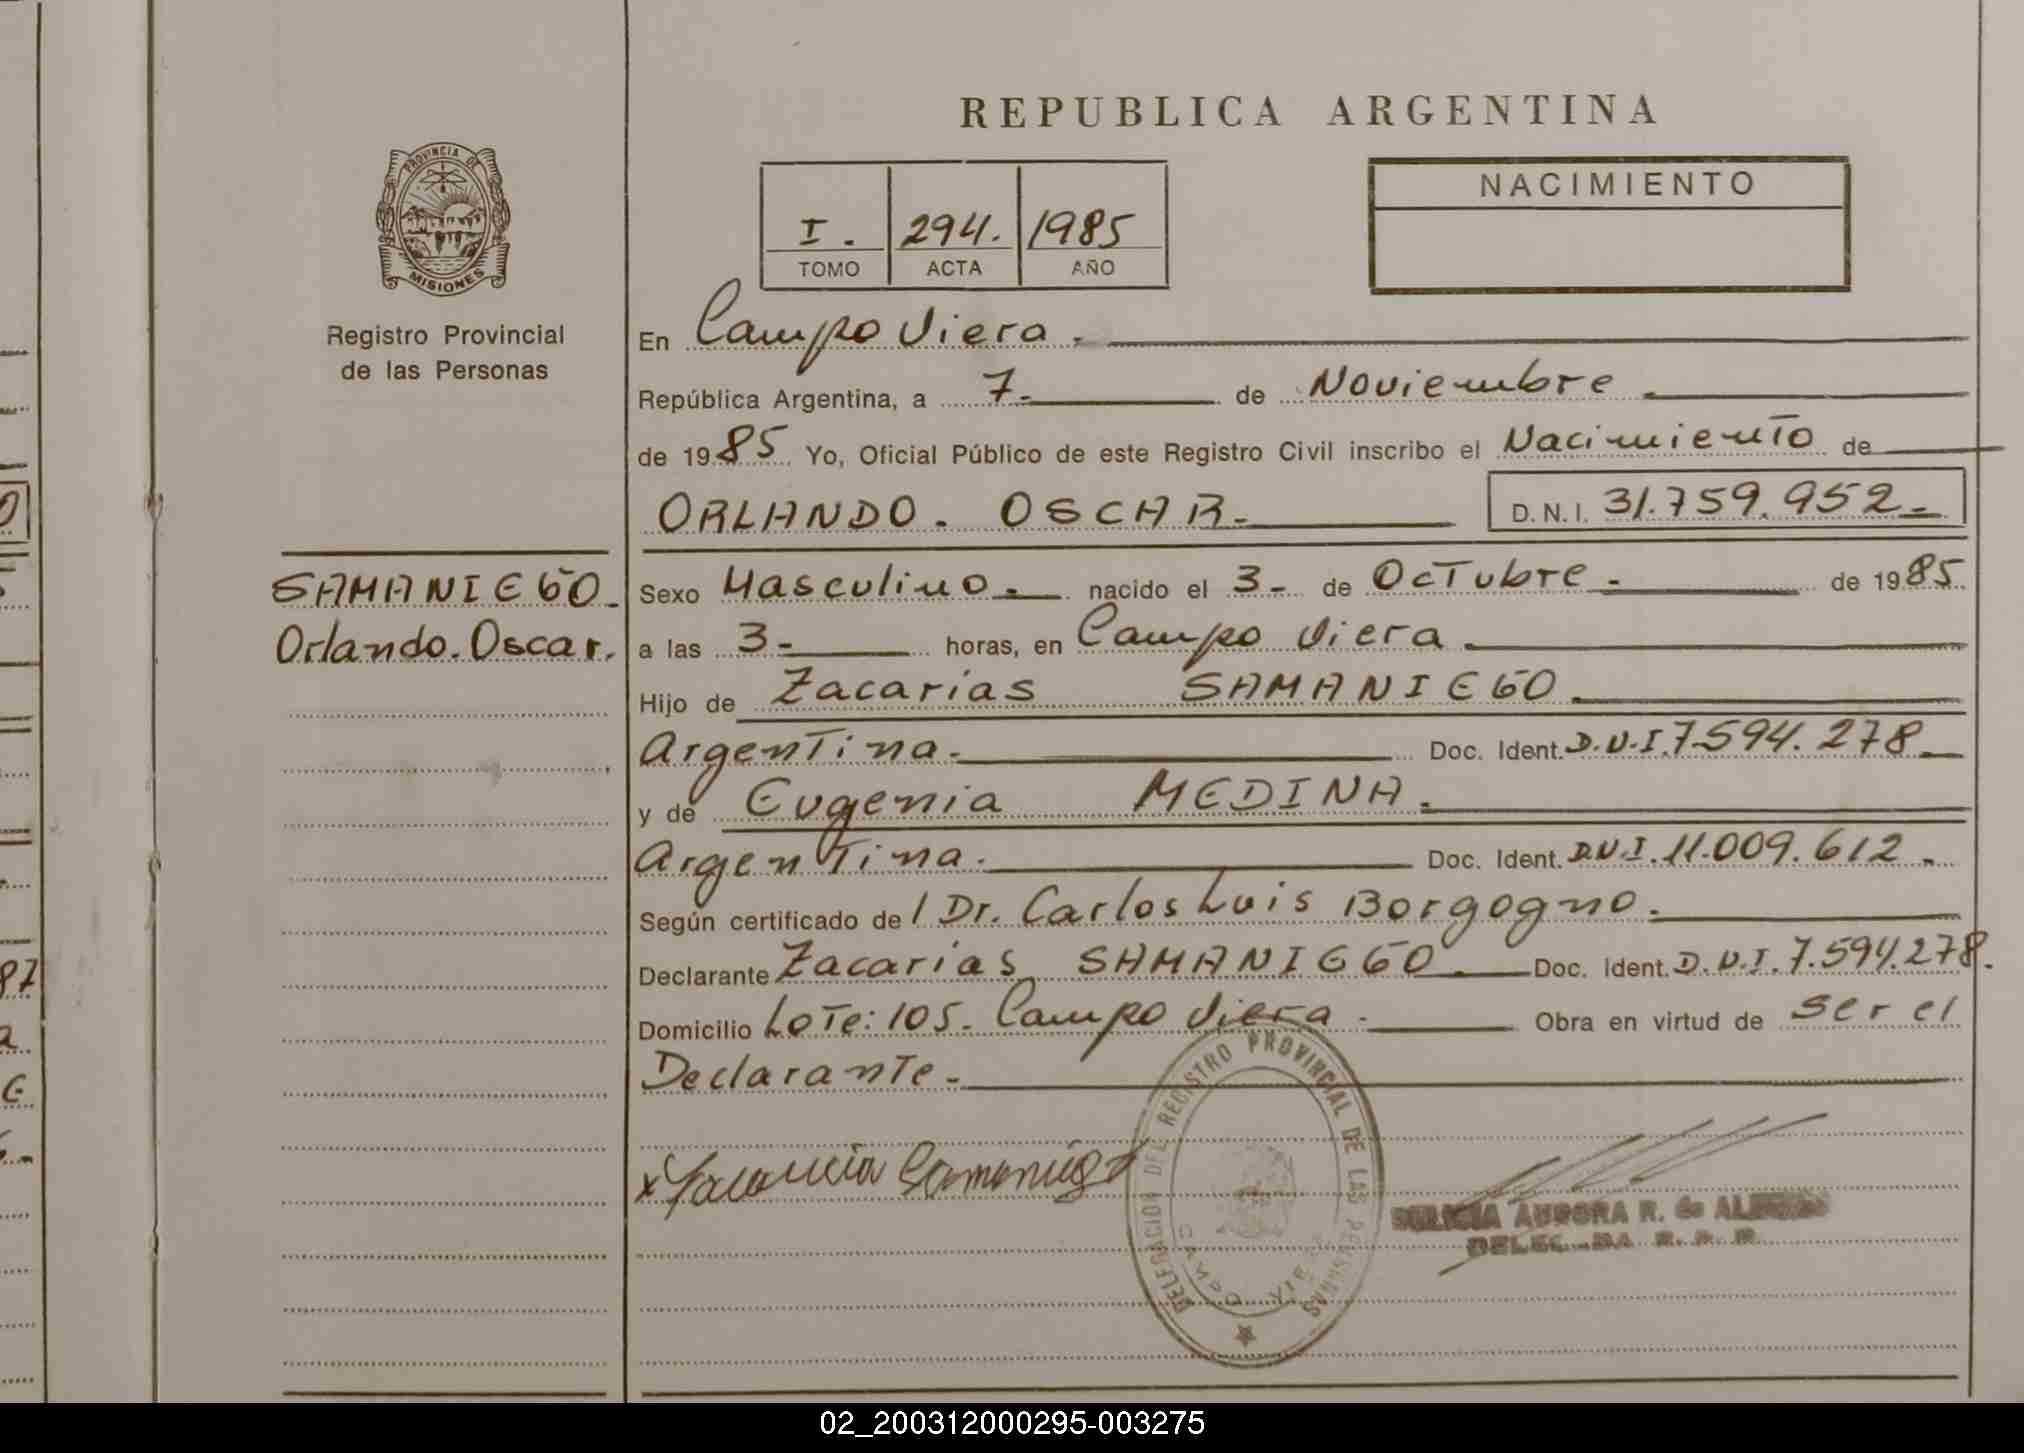 REPUBLICA ARGENTINA
PROVINCIA DE
MISIONES
Registro Provincial
de las Personas
I. 294. 1985
TOMO ACTA AÑO
NACIMIENTO
En Campo Viera.
República Argentina, a 7- de Noviembre
de 1985 Yo, Oficial Público de este Registro Civil inscribo el Nacimiento de
ORLANDO. OSCAR. D.N.I. 31.759.952-
SAMANIEGO.
Orlando. Oscar.
Sexo Masculino. nacido el 3- de Octubre. de 1985
a las 3- horas, en Campo Viera
Hijo de Zacarías SAMANIEGO.
Argentina. Doc. Ident. D.N.I. 7.594.278
y de Eugenia MEDINA.
Argentina. Doc. Ident. D.N.I. 11.009.612.
Según certificado de / Dr. Carlos Luis Borgogno.
Declarante Zacarías SAMANIEGO. Doc. Ident. D.N.I. 7.594.278.
Domicilio Lote: 105. Campo Viera. Obra en virtud de ser el
Declarante-
DELEGACION DEL REGISTRO PROVINCIAL DE LAS PERSONAS
CAMPO
AURORA R. de
02_200312000295-003275